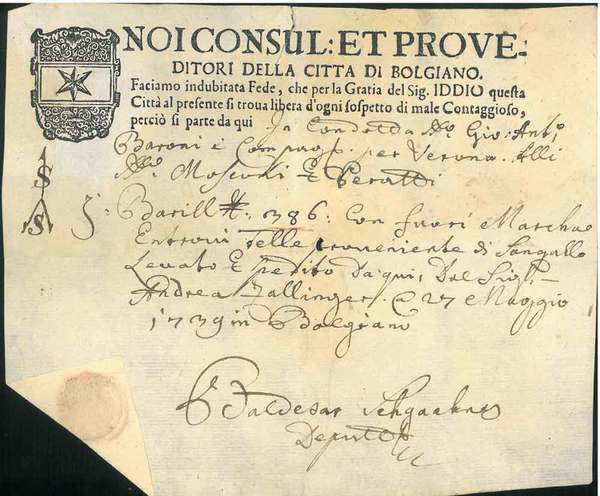 NOI CONSUL: ET PROVE-
DITORI DELLA CITTA DI BOLGIANO.
Faciamo indubitata Fede, che per la Gratia del Sig. IDDIO questa
Città al presente si troua libera d'ogni sospetto di male Contaggioso,
perciò si parte da qui In Condotta Gio: Ant:
Baroni e Comp per Verona Alli
Mosconi E Peratti
S
S S
3: Barill 386: Con fuori Marcha
Entrovi Telle proveniente di Sangallo
Levato E Spedito Da qui, Dal Sig:
Andrea Zallinger @ 27 Maggio
1739 in Bolgiano
Baldesar
Deput